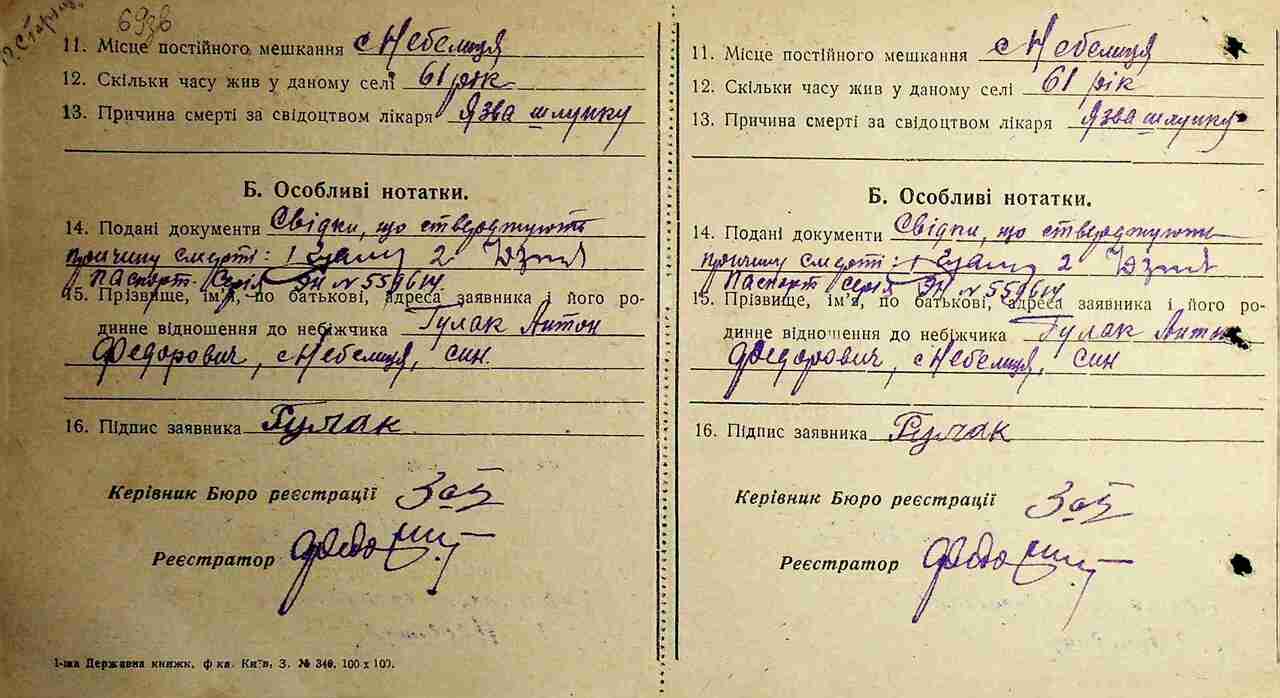 693в
11. Місце постійного мешкання с Небелиця
12. Скільки часу жив у даному селі 61 рік
13. Причина смерті за свідоцтвом лікаря Язва шлунку
Б. Особливі нотатки.
14. Подані документи Свідки, що стверджують
причину смерті: 1 2
Паспорт Серія № 559614
15. Прізвище, ім'я, по батькові, адреса заявника і його ро-
динне відношення до небіжчика Гулак Антон
Федорович, с Небелиця, син.
16. Підпис заявника Гулак
Керівник Бюро реєстрації
Реєстратор
1-ша Державна книжк. ф ка. Київ, З. № 340. 100 x 100.
11. Місце постійного мешкання с Небелиця
12. Скільки часу жив у даному селі 61 рік
13. Причина смерті за свідоцтвом лікаря Язва шлунку
Б. Особливі нотатки.
14. Подані документи Свідки, що стверджують
причину смерті: 1 2
Паспорт Серія № 559614
15. Прізвище, ім'я, по батькові, адреса заявника і його ро-
динне відношення до небіжчика Гулак Антон
Федорович, с Небелиця, син
16. Підпис заявника Гулак
Керівник Бюро реєстрації
Реєстратор